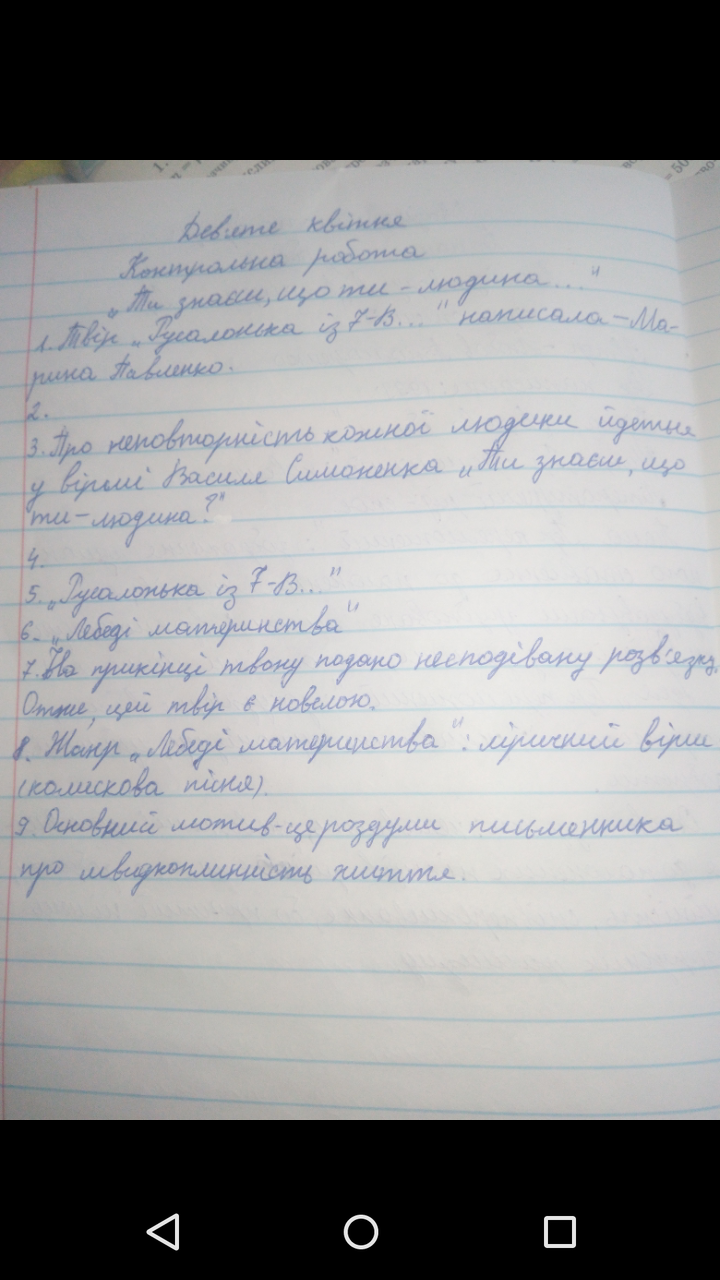 Дев'яте квітня
Контрольна робота
„Ти знаєш, що ти – людина..."
1. Твір „Русалонька із 7-В..." написала – Ма-
рина Павленко.
2.
3. Про неповторність кожної людини йдеться
у вірші Василя Симоненка „Ти знаєш, що
ти – людина?"
4.
5. „Русалонька із 7-В..."
6. „Лебеді материнства"
7. На прикінці твору подано несподівану розв'язку.
Отже, цей твір є новелою.
8. Жанр „Лебеді материнства": ліричний вірш
(колискова пісня).
9. Основний мотив - це роздуми письменника
про швидкоплинність життя.